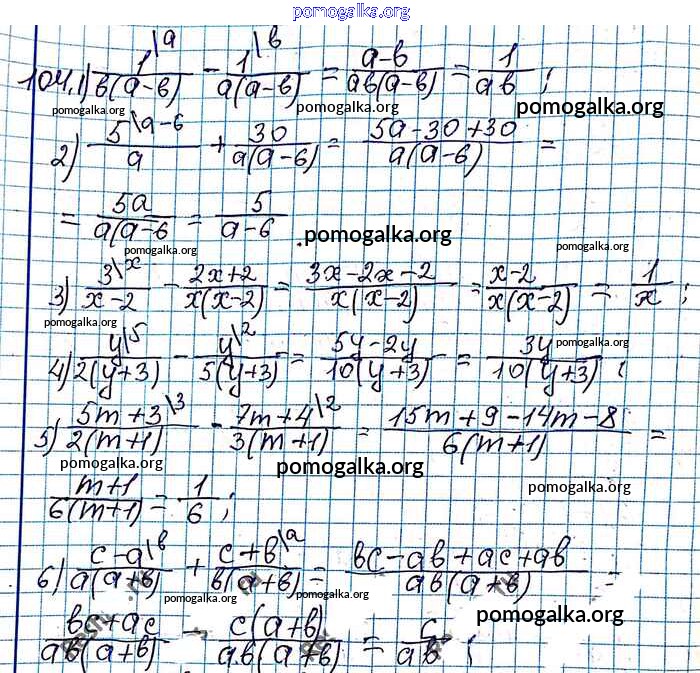 pomogalka.org
104.1) 1\a / b(a-b) - 1\b / a(a-b) = a-b / ab(a-b) = 1 / ab ;
pomogalka.org pomogalka.org pomogalka.org
2) 5\a-6 / a + 30 / a(a-6) = 5a-30+30 / a(a-6) =
= 5a / a(a-6 = 5 / a-6
pomogalka.org pomogalka.org pomogalka.org
3) 3\x / x-2 - 2x+2 / x(x-2) = 3x-2x-2 / x(x-2) = x-2 / x(x-2) = 1 / x ;
pomogalka.org
4) y\5 / 2(y+3) - y\2 / 5(y+3) = 5y-2y / 10(y+3) = 3y / 10(y+3) ;
pomogalka.org
5) 5m+3\3 / 2(m+1) - 7m+4\2 / 3(m+1) = 15m+9-14m-8 / 6(m+1) =
pomogalka.org pomogalka.org pomogalka.org
m+1 / 6(m+1) = 1 / 6 ;
6) c-a\b / a(a+b) + c+b\a / b(a+b) = bc-ab+ac+ab / ab(a+b) =
pomogalka.org pomogalka.org
bc+ac / ab(a+b) - c(a+b) / ab(a+b) = c / ab ;
pomogalka.org